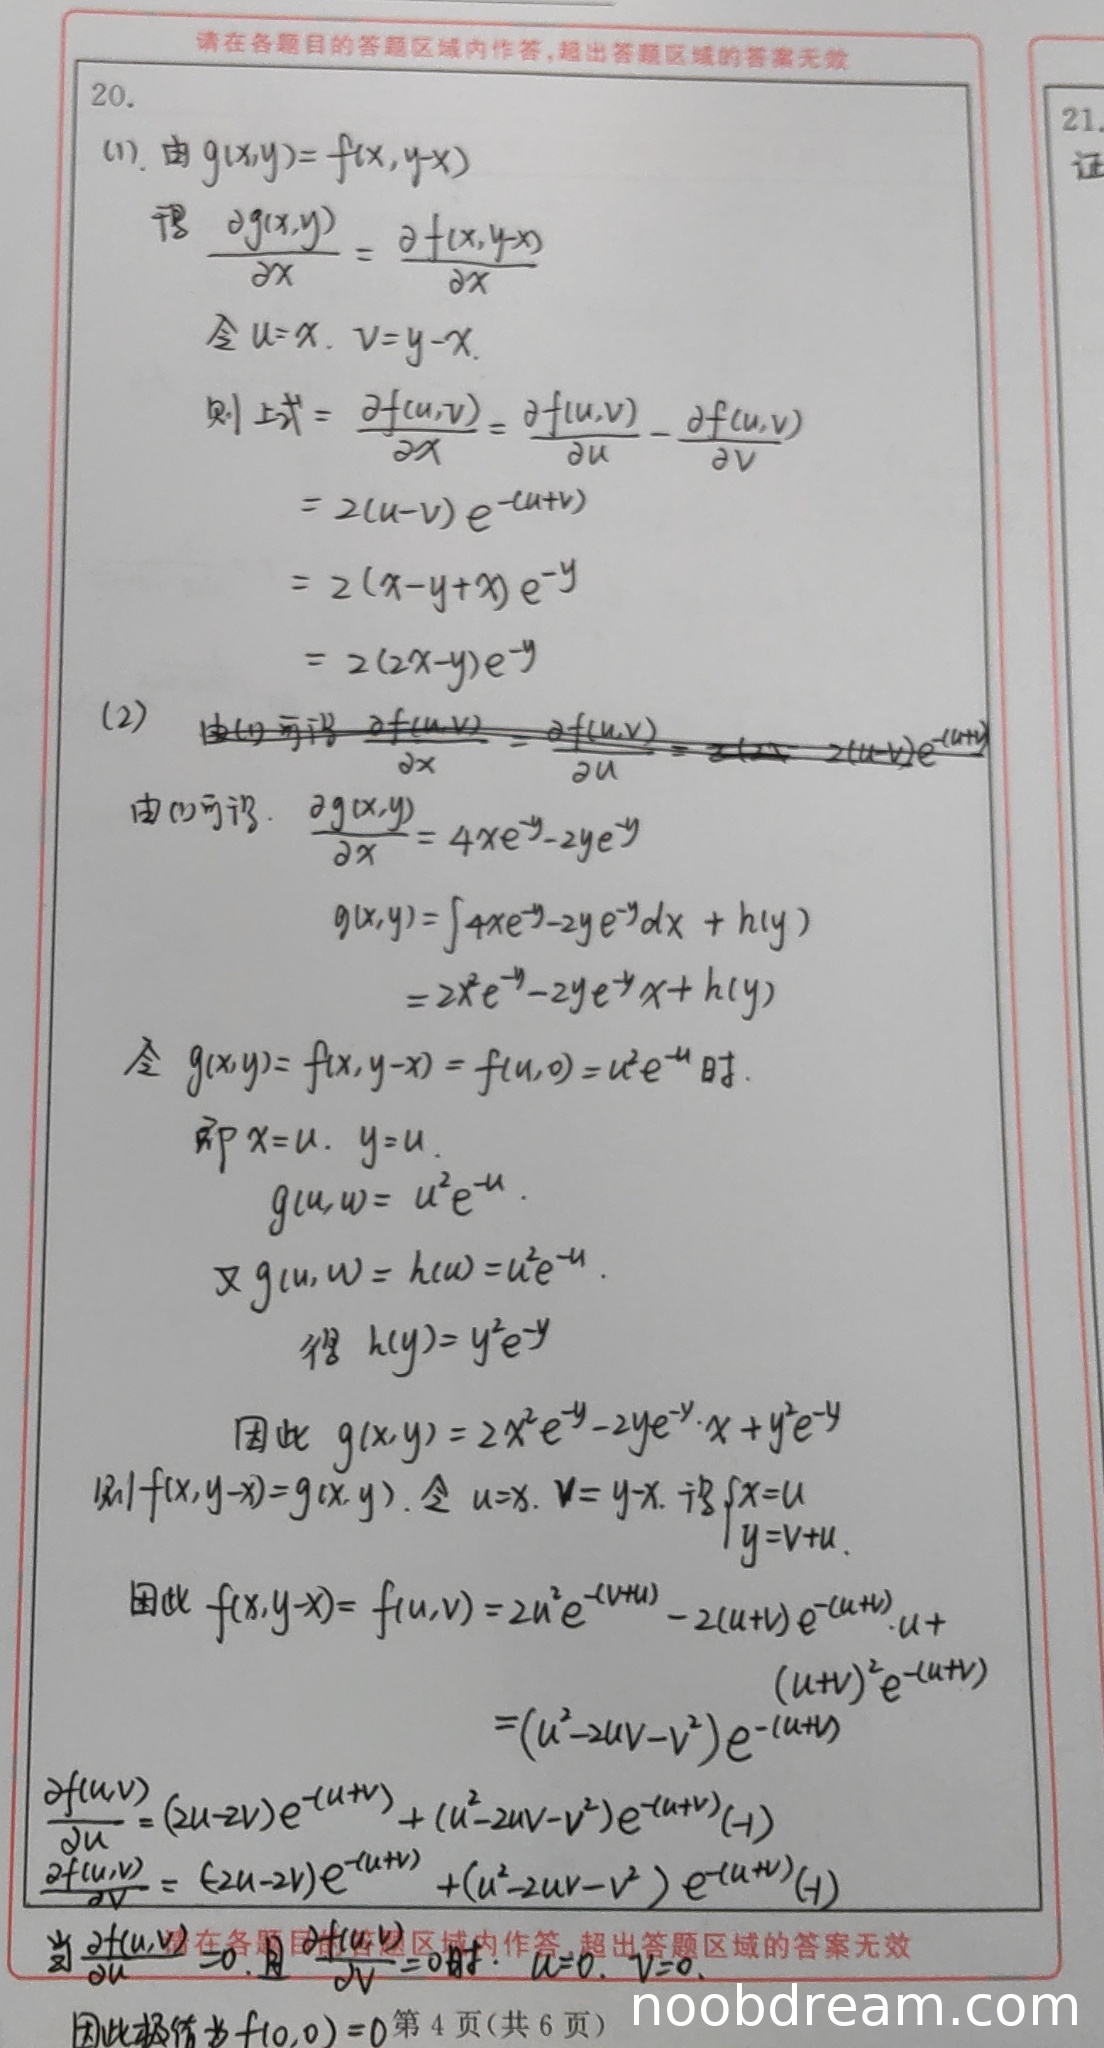 请在各题目的答题区域内作答,超出答题区域的答案无效
20.
(1). 由 g(x,y)= f(x, y-x)
得 ∂g(x,y)/∂x = ∂f(x,y-x)/∂x
令 u=x. v=y-x.
则上式= ∂f(u,v)/∂x = ∂f(u,v)/∂u - ∂f(u,v)/∂v
= 2(u-v) e^-(u+v)
= 2(x-y+x) e^-y
= 2(2x-y)e^-y
(2) 由(1)可得 ∂f(u,v)/∂x = ∂f(u,v)/∂u = 2(u-v)e^-(u+v)
由(1)可得. ∂g(x,y)/∂x = 4xe^-y-2ye^-y
g(x,y)=∫4xe^-y-2ye^-y dx + h(y)
=2x²e^-y-2ye^-y x+h(y)
令 g(x,y)= f(x,y-x) = f(u,0)=u²e^-u时.
即 x=u. y=u.
g(u,u)= u²e^-u.
又 g(u,u)= h(u)=u²e^-u.
得 h(y)= y²e^-y
因此 g(x,y)=2x²e^-y-2ye^-y·x+y²e^-y
则 f(x,y-x)=g(x,y). 令 u=x. v=y-x. 得{x=u
y=v+u.
因此 f(x,y-x)= f(u,v)=2u²e^-(v+u) -2(u+v)e^-(u+v)·u+
(u+v)²e^-(u+v)
=(u²-2uv-v²)e^-(u+v)
∂f(u,v)/∂u =(2u-2v)e^-(u+v) +(u²-2uv-v²)e^-(u+v)(-1)
∂f(u,v)/∂v = (-2u-2v)e^-(u+v) +(u²-2uv-v²) e^-(u+v)(-1)
请在各题目的答题区域内作答,超出答题区域的答案无效
当 ∂f(u,v)/∂u =0.且 ∂f(u,v)/∂v =0时. u=0. v=0.
因此极值为 f(0,0)=0
第 4 页(共 6 页)
21.
证
noobdream.com